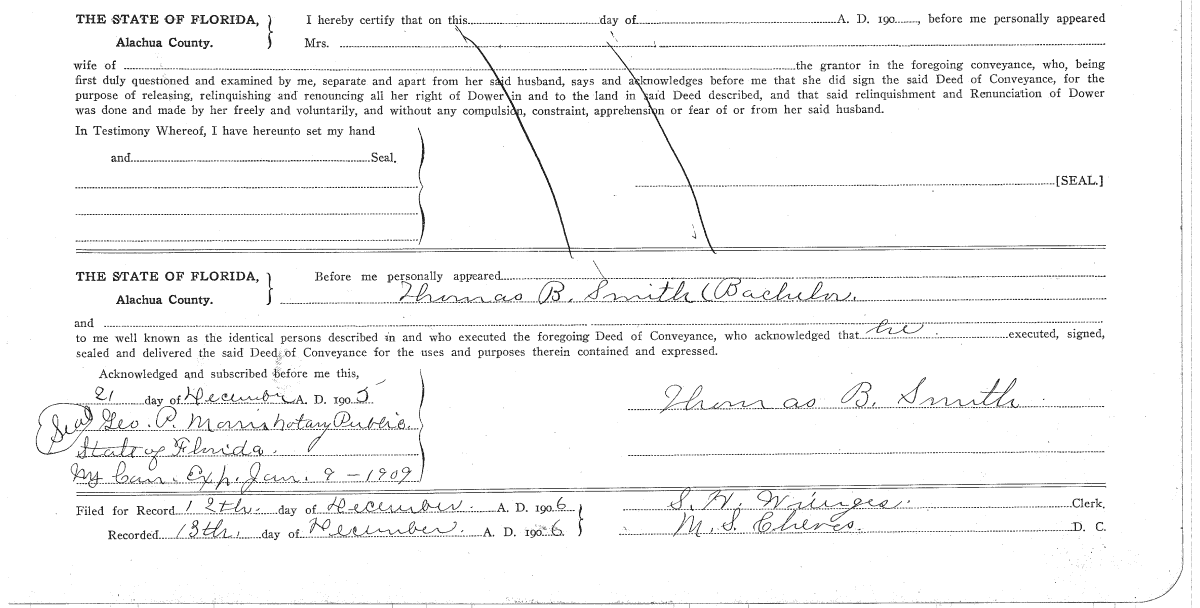 THE STATE OF FLORIDA, I hereby certify that on this day of A. D. 190 , before me personally appeared
Alachua County. Mrs.
wife of the grantor in the foregoing conveyance, who, being
first duly questioned and examined by me, separate and apart from her said husband, says and acknowledges before me that she did sign the said Deed of Conveyance, for the
purpose of releasing, relinquishing and renouncing all her right of Dower in and to the land in said Deed described, and that said relinquishment and Renunciation of Dower
was done and made by her freely and voluntarily, and without any compulsion, constraint, apprehension or fear of or from her said husband.
In Testimony Whereof, I have hereunto set my hand
and Seal.
[SEAL.]
THE STATE OF FLORIDA, Before me personally appeared
Alachua County. Thomas B. Smith (Bachelor.
and
to me well known as the identical persons described in and who executed the foregoing Deed of Conveyance, who acknowledged that he executed, signed,
sealed and delivered the said Deed of Conveyance for the uses and purposes therein contained and expressed.
Acknowledged and subscribed before me this,
21 day of December A. D. 1905
Thomas B. Smith
(Seal) Geo. P. Morris Notary Public.
State of Florida.
My Com. Exp. Jan. 9 - 1909
Filed for Record 12th. day of December. A. D. 1906 S. H. Wienges. Clerk.
Recorded 13th. day of December. A. D. 1906 M. S. Cheves. D. C.